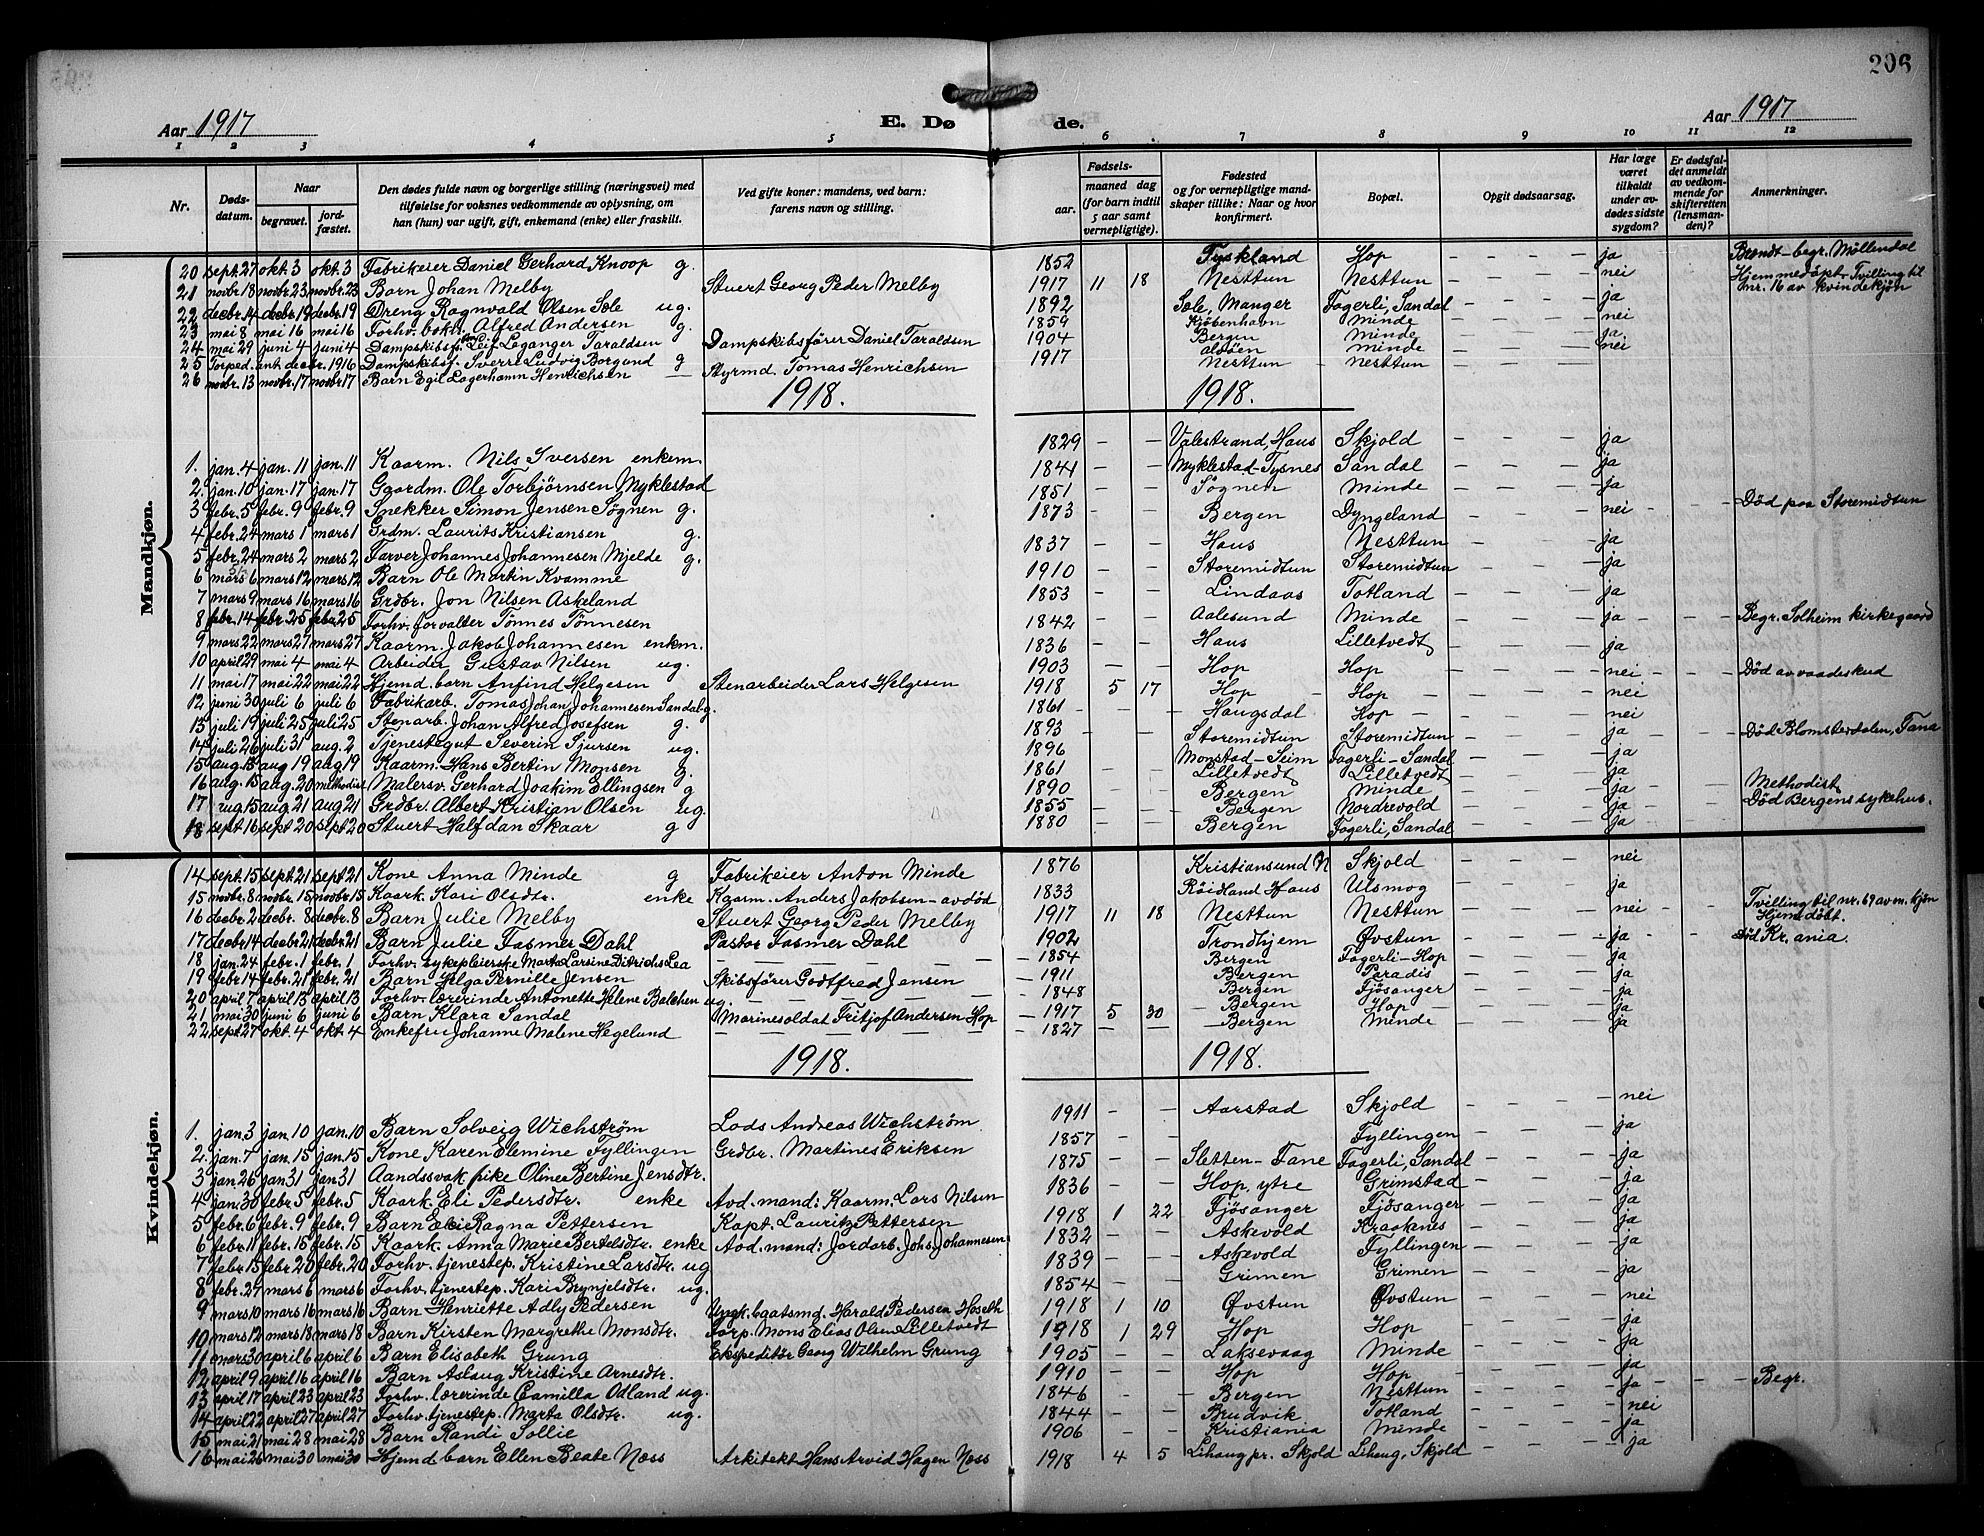 206
Aar 1917
E. Dø
de.
Aar 1917
1 2 3 4 5 6 7 8 9 10 11 12
Nr.
Døds-datum.
Naar
begravet.
jord-fæstet.
Den dødes fulde navn og borgerlige stilling (næringsvei) med tilføielse for voksnes vedkommende av oplysning, om han (hun) var ugift, gift, enkemand (enke) eller fraskilt.
Ved gifte koner: mandens, ved barn: farens navn og stilling.
Fødsels-
aar.
maaned dag
(for barn indtil 5 aar samt vernepligtige).
Fødested
og for vernepligtige mandskaper tillike: Naar og hvor konfirmert.
Bopæl.
Opgit dødsaarsag.
Har læge været tilkaldt under avdødes sidste sygdom?
Er dødsfaldet anmeldt av vedkommende for skifteretten (lensmanden)?
Anmerkninger.
Mandkjøn.
20 sept. 27 okt. 3 okt. 3 Fabrikeier Daniel Gerhard Knoop g. 1852 Tyskland Hop ja Brændt - begr. Møllendal
21 novbr. 18 novbr. 23 novbr. 23 Barn Johan Melby Stuert Georg Peder Melby 1917 11 18 Nesttun Nesttun nei Hjemmedøpt. Tvilling til nr. 16 av kvindekjøn
22 decbr. 14 decbr. 19 decbr. 19 Dreng Ragnvald Olsen Sæle ug. 1892 Sæle, Manger Fagerli, Sandal ja
23 mai 8 mai 16 mai 16 Forhv. bokh. Alfred Andersen g. 1859 Kjøbenhavn Minde nei
24 mai 29 juni 4 juni 4 Dampskibsf. søn Leif Loganger Taraldsen Dampskibsfører Daniel Taraldsen 1904 Bergen Minde ja
25 Torped. ant. decbr. 1916 Dampskibsf. Sverre Ludvig Borgund g Alvøen Minde nei
26 novbr. 13 novbr. 17 novbr. 17 Barn Egil Lagerhamn Henrichsen Styrmd. Tomas Henrichsen 1917 Nesttun Nesttun
1918. 1918.
1. jan. 4 jan. 11 jan. 11 Kaarm. Nils Iversen enkem. 1829 Valestrand, Haus Skjold ja
2. jan. 10 jan. 17 jan. 17 Gaardm. Ole Torbjørnsen Myklestad 1841 Myklestad-Tysnes Sandal ja
3 febr. 5 febr. 9 febr. 9 Snekker Simon Jensen Søgnen g. 1851 Søgnen Minde ja
4 febr. 24 mars 1 mars 1 Grdm. Laurits Kristiansen g. 1873 Bergen Dyngeland nei Død paa Storemidtun
5 febr. 24 mars 2 mars 2 Farver Johannes Johannesen Mjelde g. 1837 Haus Nesttun ja
6 mars 6 mars 12 mars 12 Barn Ole Martin Kvamme 1910 Storemidtun Storemidtun ja
7 mars 9 mars 16 mars 16 Grdbr. Jon Nilsen Askeland 1853 Lindaas Totland ja
8 febr. 14 febr. 25 febr. 25 Forhv. forvalter Tønnes Tønnesen 1842 Aalesund Minde ja Begr. Solheim kirkegaard
9 mars 22 mars 27 mars 27 Kaarm. Jakob Johannesen enkm. 1836 Haus Lilletvedt ja
10 april 29 mai 4 mai 4 Arbeider Gustav Nilsen ug. 1903 Hop Hop nei Død av vaadeskud
11 mai 17 mai 22 mai 22 Hjemd. barn Anfind Helgesen Stenarbeider Lars Helgesen 1918 5 17 Hop Hop nei
12 juni 30 juli 6 juli 6 Fabrikarb. Tomas Johan Johannesen Sandal g. 1861 Haugsdal Hop nei
13 juli 19 juli 25 juli 25 Stenarb. Johan Alfred Josefsen g. 1893 Storemidtun Storemidtun ja Død Blomsterdalen, Fana
14 juli 26 juli 31 aug. 2 Tjenestegut Severin Sjursen ug. 1896 Monstad-Seim Fagerli-Sandal ja
15 aug. 13 aug. 19 aug. 19 Kaarm. Hans Bertin Monsen g. 1861 Lilletvedt Lilletvedt ja
16 aug. 15 aug. 20 methodist Malersv. Gerhard Joakim Ellingsen g 1890 Bergen Minde ja Methodist
17 aug 15 aug. 21 aug 21 Grdbr. Albert Kristian Olsen ug. 1855 Bergen Nordrevold ja Død Bergens sykehus.
18 sept. 16 sept 20 sept 20 Stuert Halfdan Skaar g 1880 Bergen Fagerli, Sandal ja
Kvindekjøn.
14 sept. 15 sept. 21 sept 21 Kone Anna Minde g Fabrikeier Anton Minde 1876 Kristiansund N Skjold nei
15 novbr. 8 novbr. 15 novbr. 15 Kaark. Kari Olsdtr. enke Kaarm. Anders Jakobsen - avdød 1833 Røidland Haus Ulsmog ja
16 decbr. 2 decbr. 8 decbr. 8 Barn Julie Melby Stuert Georg Peder Melby 1917 11 18 Nesttun Nesttun nei Tvilling til nr. 69 av m. kjøn Hjemdøbt.
17 decbr. 14 decbr. 21 decbr. 21 Barn Julie Fasmer Dahl Pastor Fasmer Dahl 1902 Trondhjem Øvstun ja Død Kr. ania.
18 jan. 24 febr. 1 febr. 1 Forhv. sykepleierske Marta Larsine Ditrichs Lea 1854 Bergen Fagerli-Hop ja
19 febr. 14 febr. 21 febr. 21 Barn Helga Pernille Jensen Skibsfører Godtfred Jensen 1911 Bergen Paradis ja
20 april 7 april 13 april 13 Forhv. lærerinde Antonette Helene Balchen ug. 1848 Bergen Fjøsanger ja
21 mai 30 juni 6 juni 6 Barn Klara Sandal Marinesoldat Fritjof Andersen Hop 1917 5 30 Bergen Hop ja
22 sept. 27 okt. 4 okt. 4 Enkefru Johanne Malene Hegelund 1827 Bergen Minde ja
1918. 1918.
1. jan. 3 jan. 10 jan. 10 Barn Solveig Wichstrøm Lods Andreas Wichstrøm 1911 Aarstad Skjold nei
2. jan. 7 jan. 15 jan. 15 Kone Karen Elemine Fyllingen Grdbr. Martines Eriksen 1857 Fyllingen ja
3 jan. 26 jan. 31 jan. 31 Aandssvak pike Oline Bertine Jensdtr. 1875 Sletten-Fane Fagerli, Sandal ja
4 jan. 30 febr. 5 febr. 5 Kaark. Eli Pedersdtr. enke Avd. mand: Kaarm. Lars Nilsen 1836 Hop, ytre Grimstad ja
5 febr. 6 febr. 9 febr. 9 Barn Elsi Ragna Pettersen Kapt. Lauritz Pettersen 1918 1 22 Fjøsanger Fjøsanger ja
6 febr. 11 febr. 15 febr. 15 Kaark. Anna Marie Bertelsdtr. enke Avd. mand: Jordarb. Johs. Johannesen 1832 Askevold Kraaknes ja
7 febr. 15 febr. 20 febr. 20 Forhv. tjenestep. Kristine Larsdtr. ug 1839 Askevold Fyllingen ja
8 febr. 27 mars 6 mars 6 Forhv. tjenestep. Kari Brynjelsdtr. ug. 1854 Grimen Grimen ja
9 mars 10 mars 16 mars 16 Barn Henriette Adly Pedersen Ungk. baatsmd. Harald Pedersen Hoseth 1918 1 10 Øvstun Øvstun nei
10 mars 12 mars 18 mars 18 Barn Kirsten Margrethe Monsdtr. Forp. Mons Elias Olsen Lilletvedt 1918 1 29 Hop Hop ja
11 mars 30 april 6 april 6 Barn Elisabeth Grung Ekspeditør Georg Wilhelm Grung 1905 Laksevaag Minde ja
12 april 9 april 16 april 16 Barn Aslaug Kristine Arnesdtr. 1910 Hop Hop ja
13 april 17 april 23 april 23 Forhv. lærerinde Camilla Odland ug. 1846 Bergen Nesttun ja Begr.
14 april 22 april 27 april 27 Forhv. tjenestep. Marta Olsdtr. ug. 1844 Brudvik Totland nei
15 mai 21 mai 28 mai 28 Barn Randi Tollie 1906 Kristiania Minde ja
16 mai 26 mai 30 mai 30 Hjemd barn Ellen Beate Næss Arkitekt Hans Arvid Hagen Næss 1918 4 5 Lihaug pr. Skjold Lihaug, Skjold ja